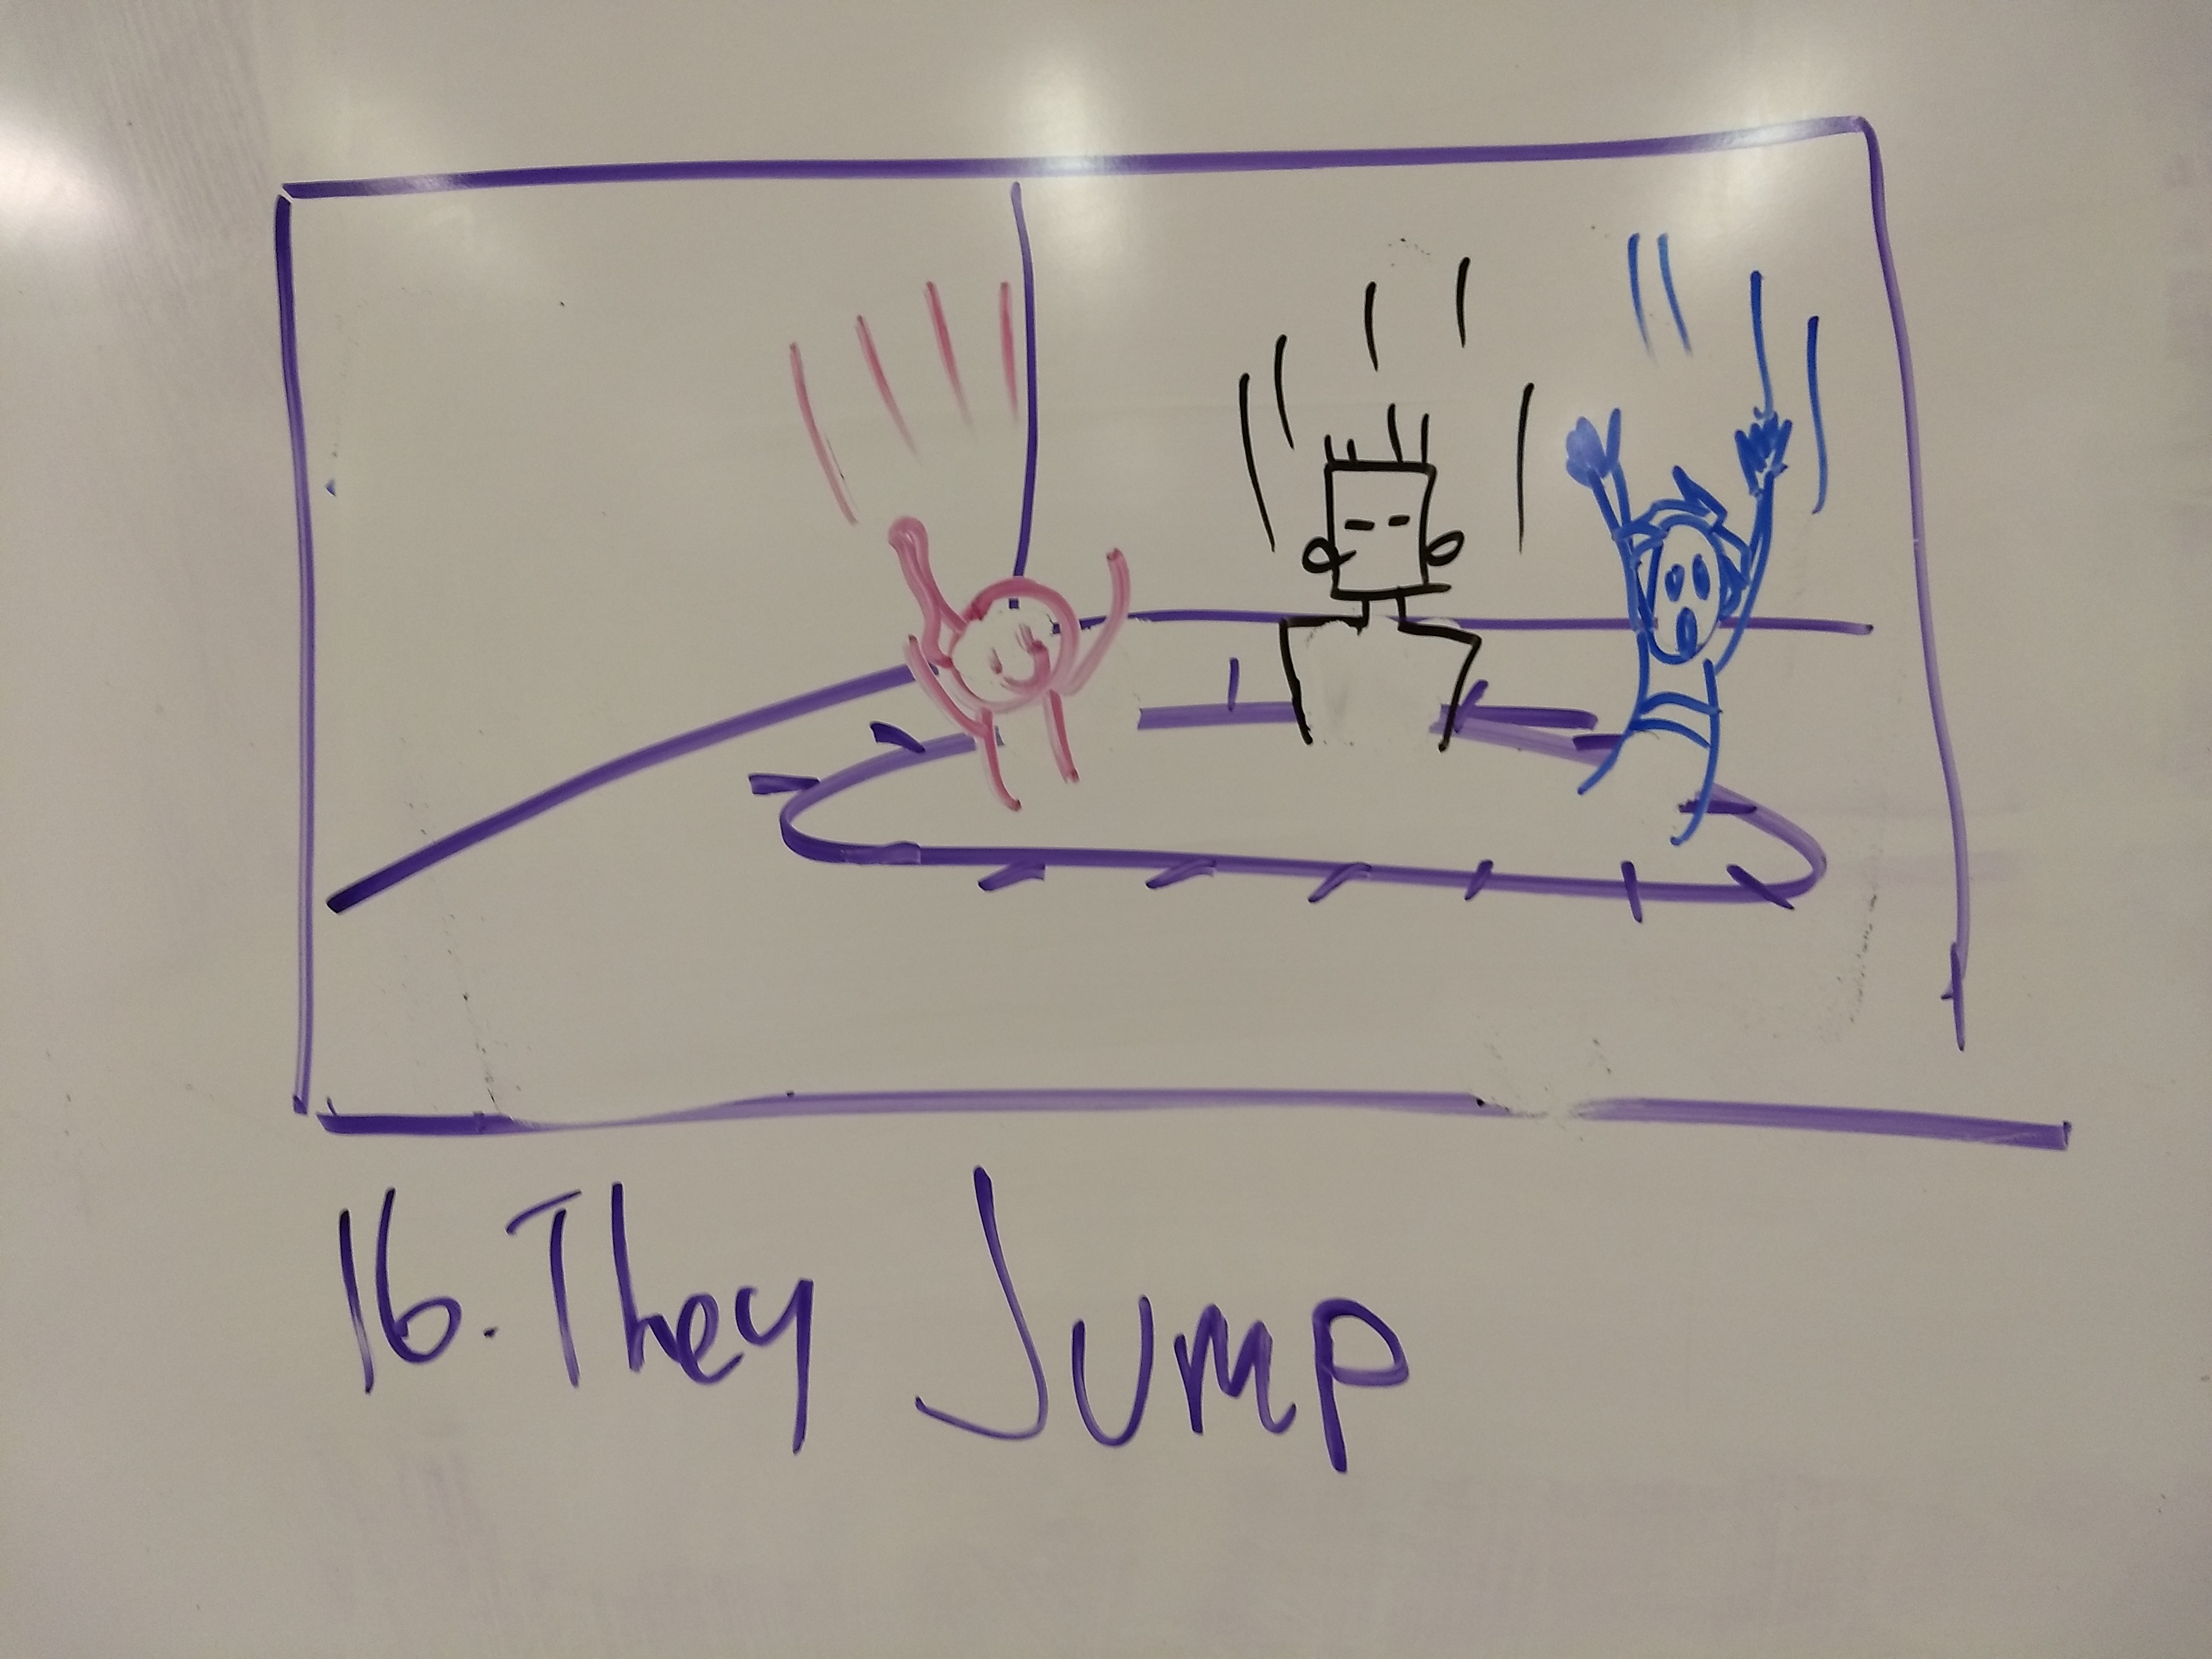 16. They Jump